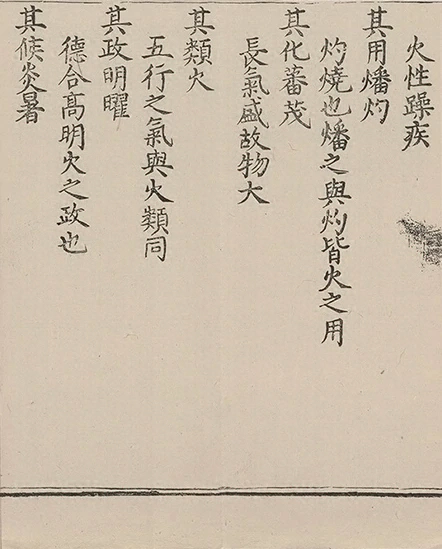 火性躁疾
其用燔灼
灼燒也燔之與灼皆火之用
其化蕃茂
長氣盛故物大
其類火
五行之氣與火類同
其政明曜
德合高明火之政也
其候炎暑